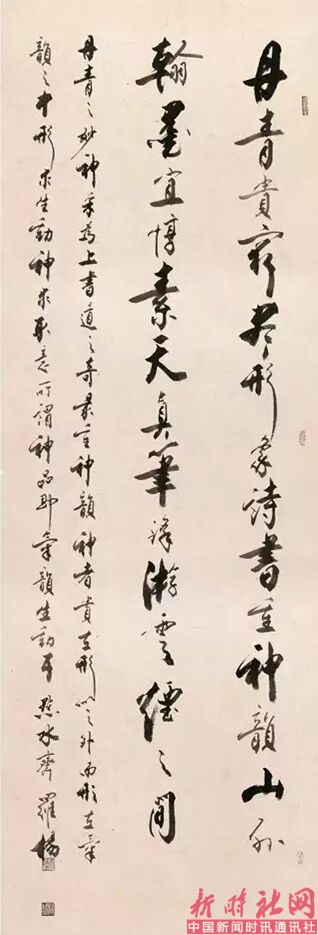 丹青貴窮尽形象詩書重神韻山外
翰墨宜惇素天真筆鋒游雲煙之間
丹青之妙神采為上書道之奇最重神韻神者貴在形以之外而形在氣
韻之中形求生動神求意所謂神品即氣韻生動耳點水齋羅楊
新時社网
中国新闻时讯通讯社